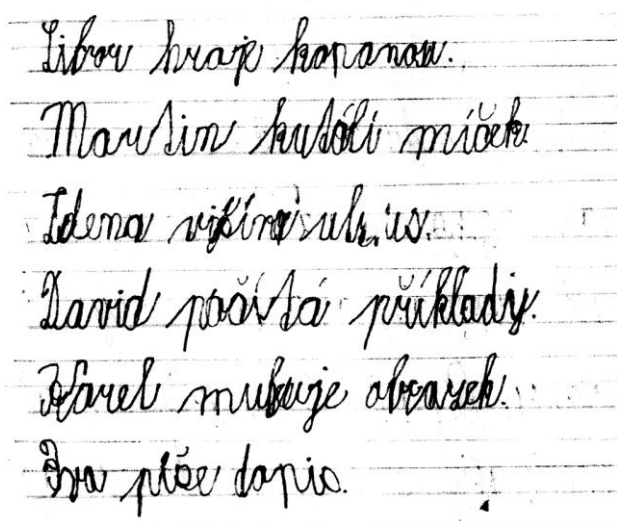 Libor hraje kopanou.
Martin kutálí míček.
Zdena
David počítá příklady.
Karel maluje obrazek.
Iva píše dopis.